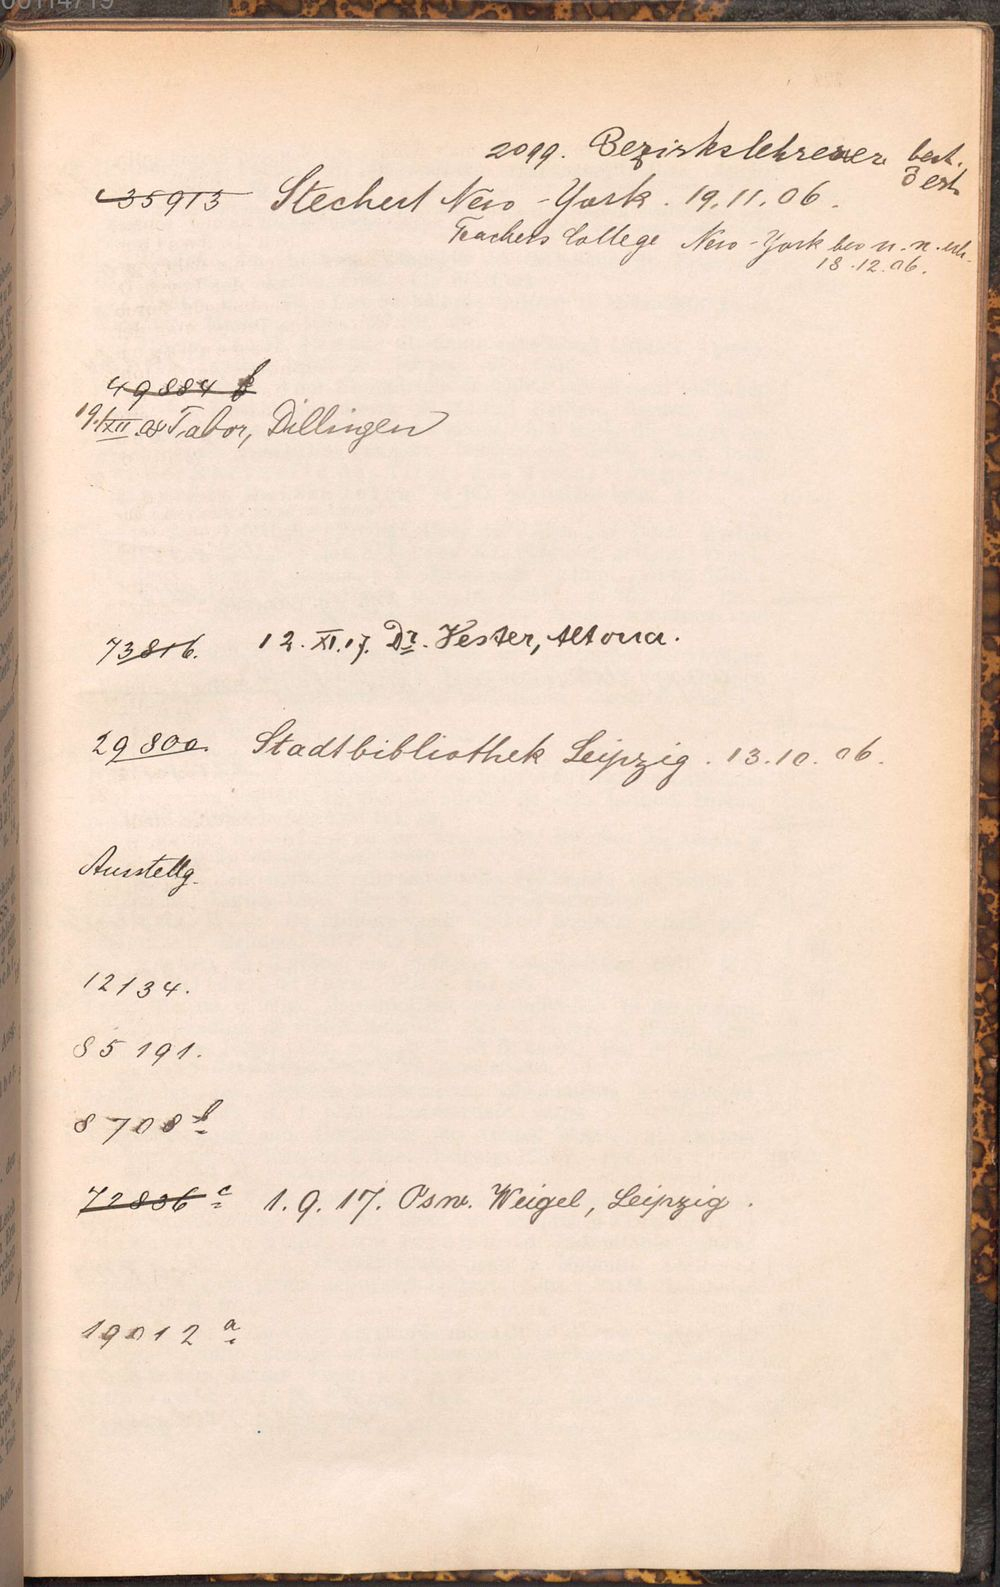 2099. Bezirkslehrerver. best.
35913 Stechert New-York. 19.11.06.
Teachers College New-York
18.12.06.
49884 b
19./XII Tabor, Dillingen
73816. 12.XI.17. Dr. Vester, Altona.
29800. Stadtbibliothek Leipzig. 13.10.06.
Ausstellg.
12134.
85191.
8708 b
72836 c 1.9.17. Osw. Weigel, Leipzig.
19012 a